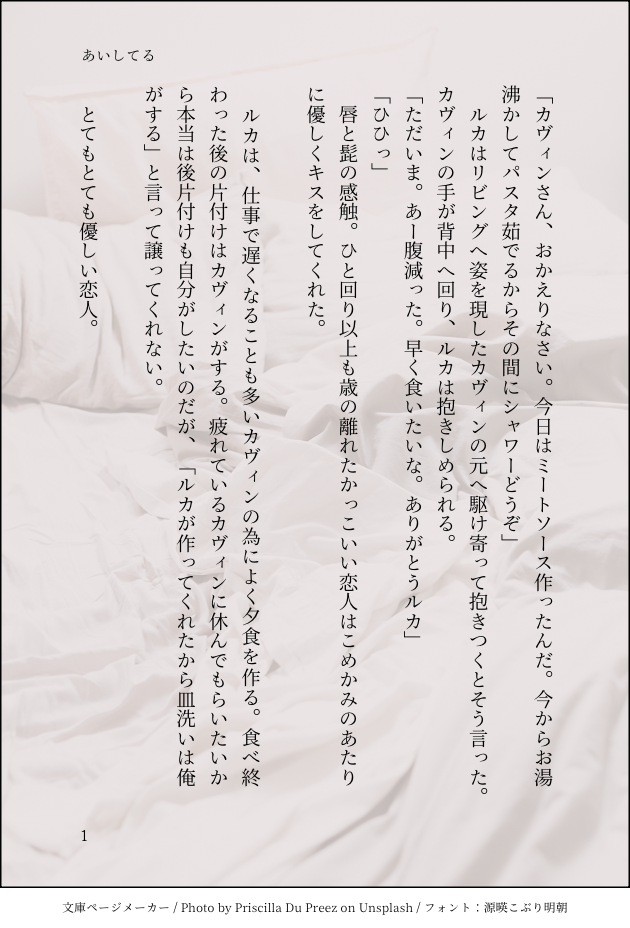 あいしてる
「カヴィンさん、おかえりなさい。今日はミートソース作ったんだ。今からお湯
沸かしてパスタ茹でるからその間にシャワーどうぞ」
ルカはリビングへ姿を現したカヴィンの元へ駆け寄って抱きつくとそう言った。
カヴィンの手が背中へ回り、ルカは抱きしめられる。
「ただいま。あー腹減った。早く食いたいな。ありがとうルカ」
「ひひっ」
唇と髭の感触。ひと回り以上も歳の離れたかっこいい恋人はこめかみのあたり
に優しくキスをしてくれた。
ルカは、仕事で遅くなることも多いカヴィンの為によく夕食を作る。食べ終
わった後の片付けはカヴィンがする。疲れているカヴィンに休んでもらいたいか
ら本当は後片付けも自分がしたいのだが、「ルカが作ってくれたから皿洗いは俺
がする」と言って譲ってくれない。
とてもとても優しい恋人。
1
文庫ページメーカー / Photo by Priscilla Du Preez on Unsplash / フォント：源暎こぶり明朝